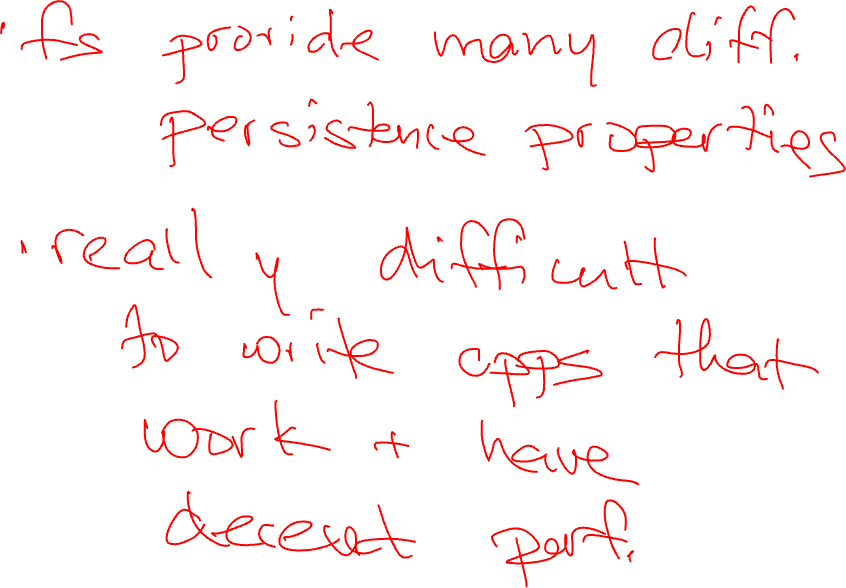 · fs provide many diff.
persistence properties
· really difficult
to write apps that
work + have
decent perf.